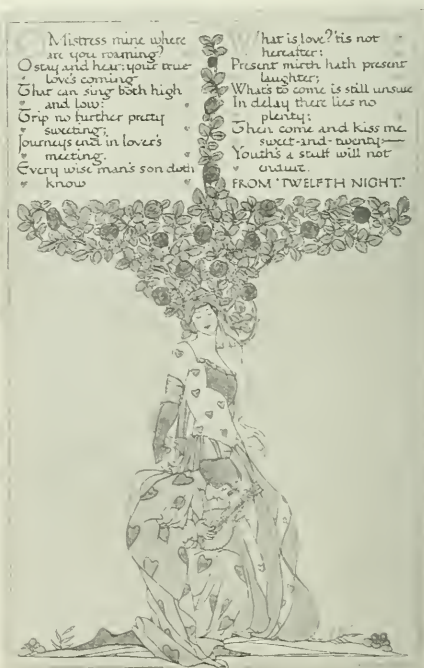 Mistress mine where
are you roaming?
O stay and hear: your true
love's coming
That can sing both high
and low:
Trip no further pretty
sweeting;
Journeys end in lover's
meeting.
Every wise man's son doth
know
What is love? 'tis not
hereafter:
Present mirth hath present
laughter;
What's to come is still unsure
In delay there lies no
plenty;
Then come and kiss me
sweet-and-twenty—
Youth's a stuff will not
endure.
FROM 'TWELFTH NIGHT.'